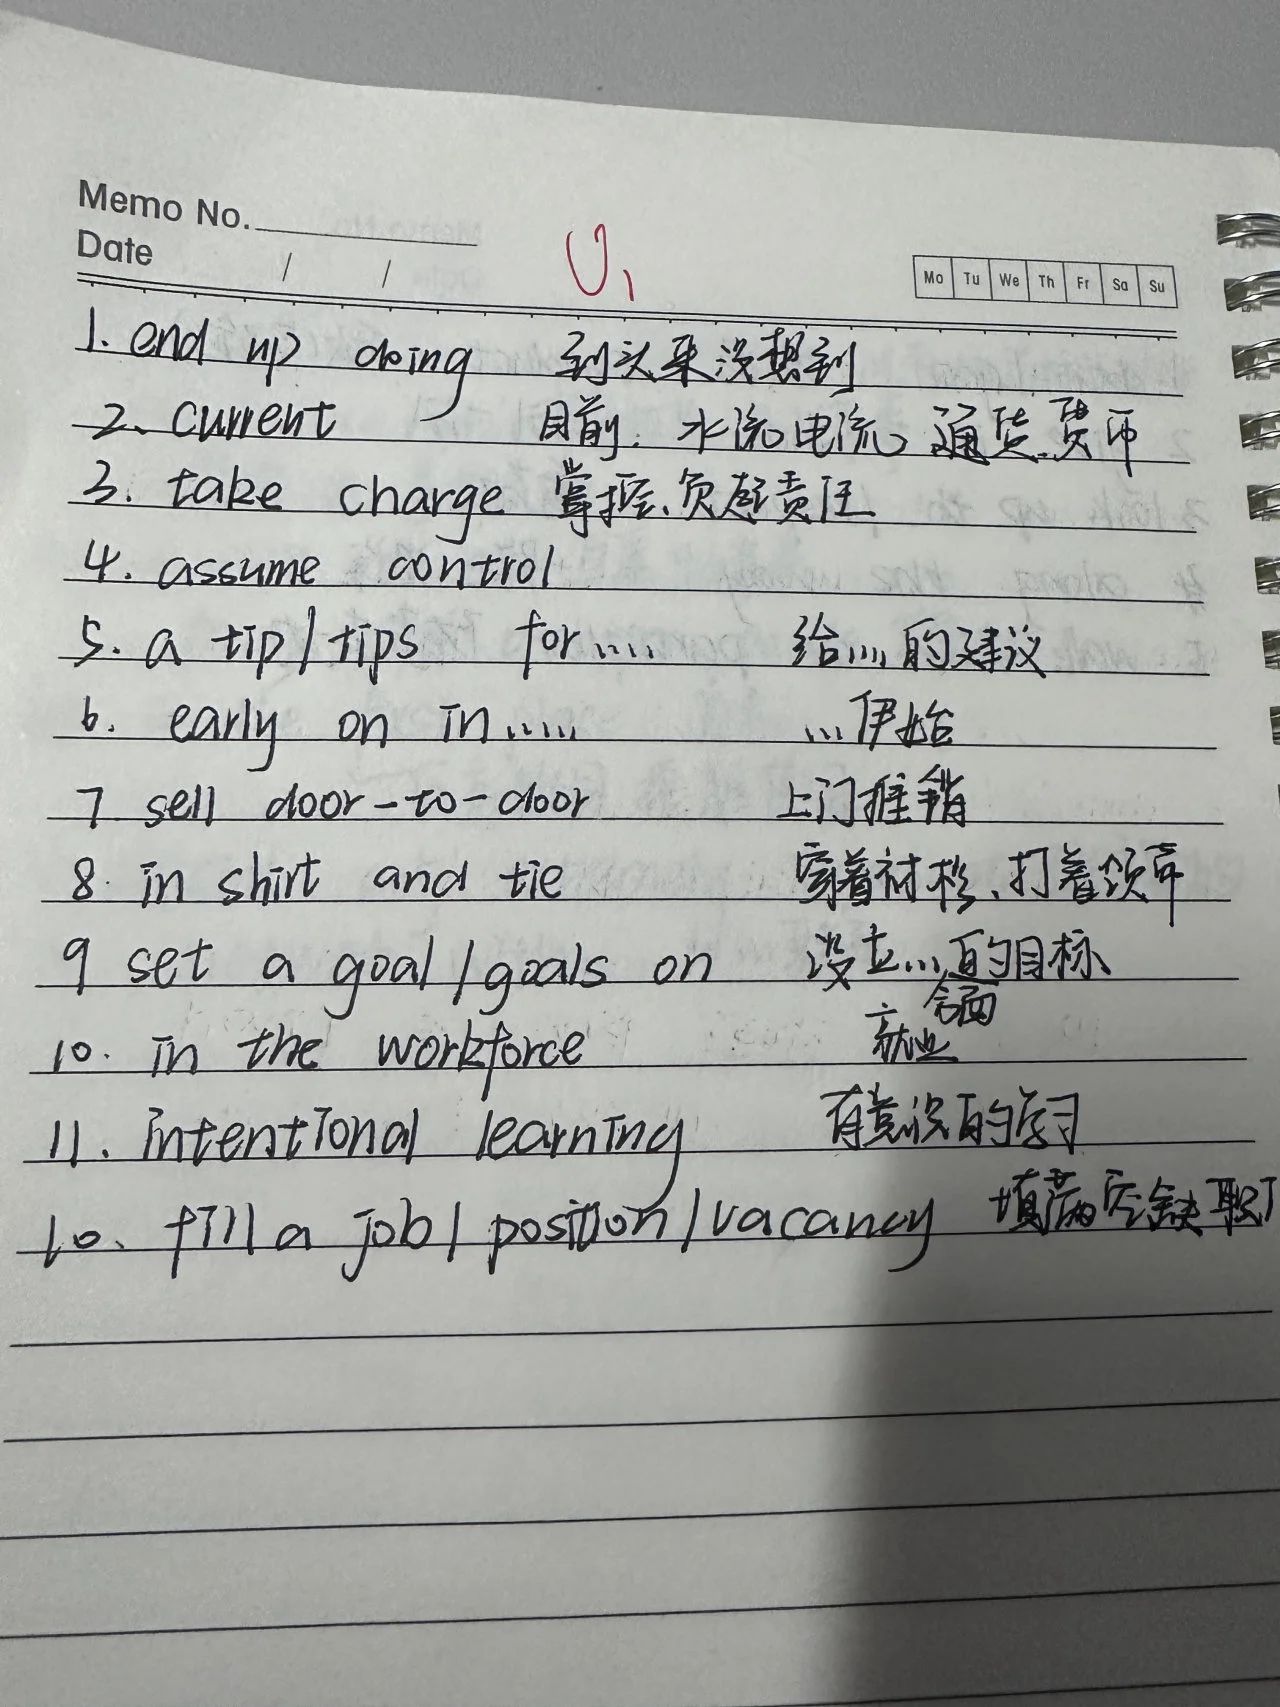 Memo No.
Date / /
U1
Mo Tu We Th Fr Sa Su
1. end up doing 到头来没想到
2、current 目前. 水流电流、通货.货币
3. take charge 掌控、负起责任
4. assume control
5. a tip/tips for.... 给....的建议
6. early on in..... ...伊始
7 sell door-to-door 上门推销
8. in shirt and tie 穿着衬衫、打着领带
9 set a goal/goals on 设立...的目标
方面
10. in the workforce 就业
11. intentional learning 有意识的学习
10. fill a job/position/vacancy 填满空缺职